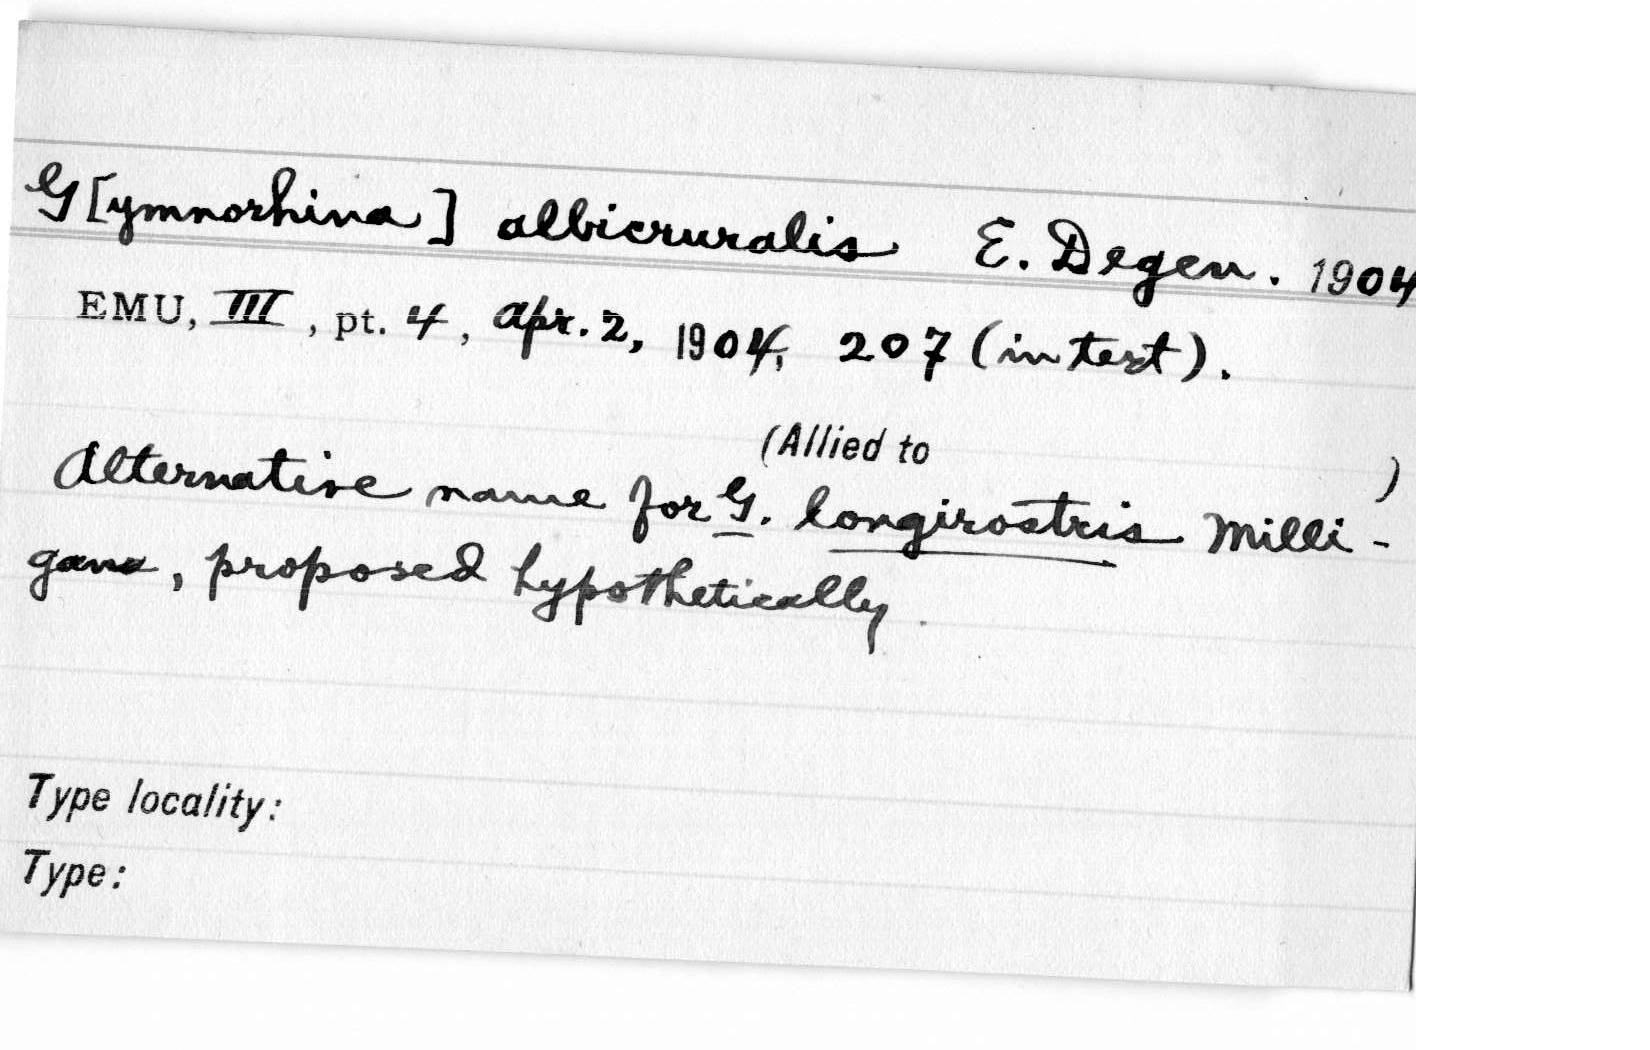 G[ymnorhina] albicruralis E. Degen. 1904
EMU, III, pt. 4, Apr. 2, 1904, 207 (in text).
(Allied to )
Alternative name for G. longirostris Milli-
gan, proposed hypothetically.
Type locality:
Type: